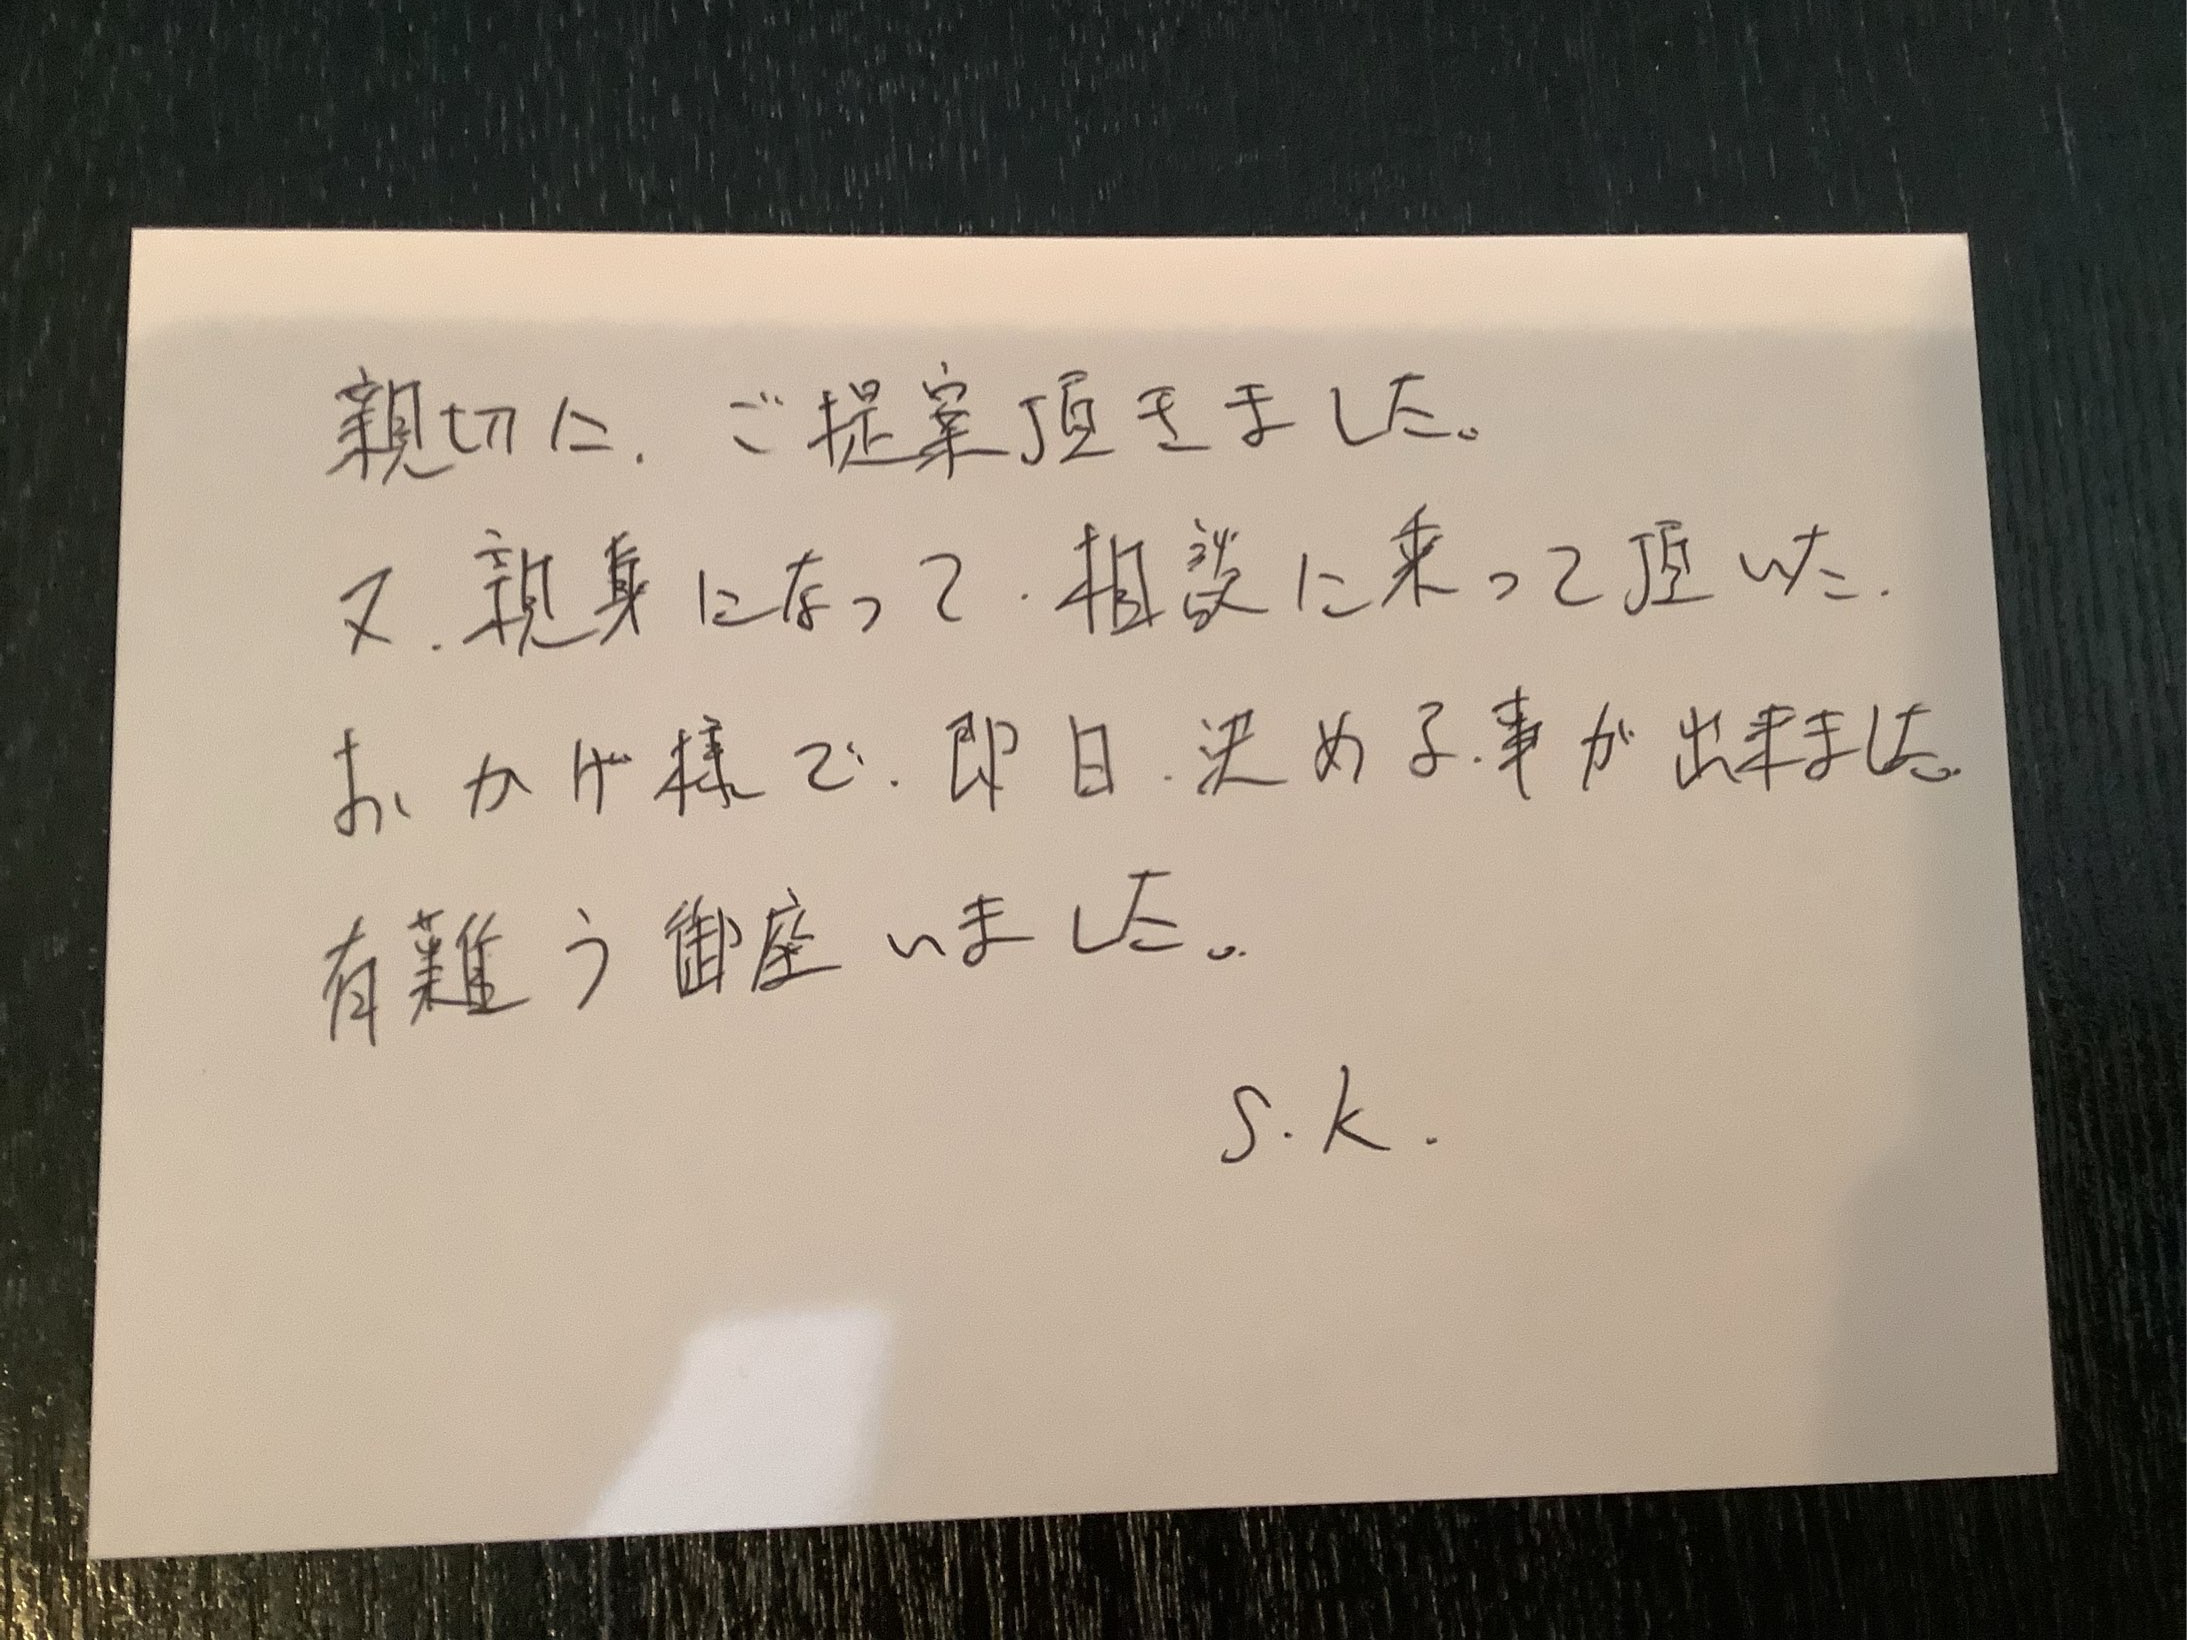 親切に、ご提案頂きました。
又、親身になって、相談に乗って頂いた、
おかげ様で、即日、決める事が出来ました。
有難う御座いました。
S.K.